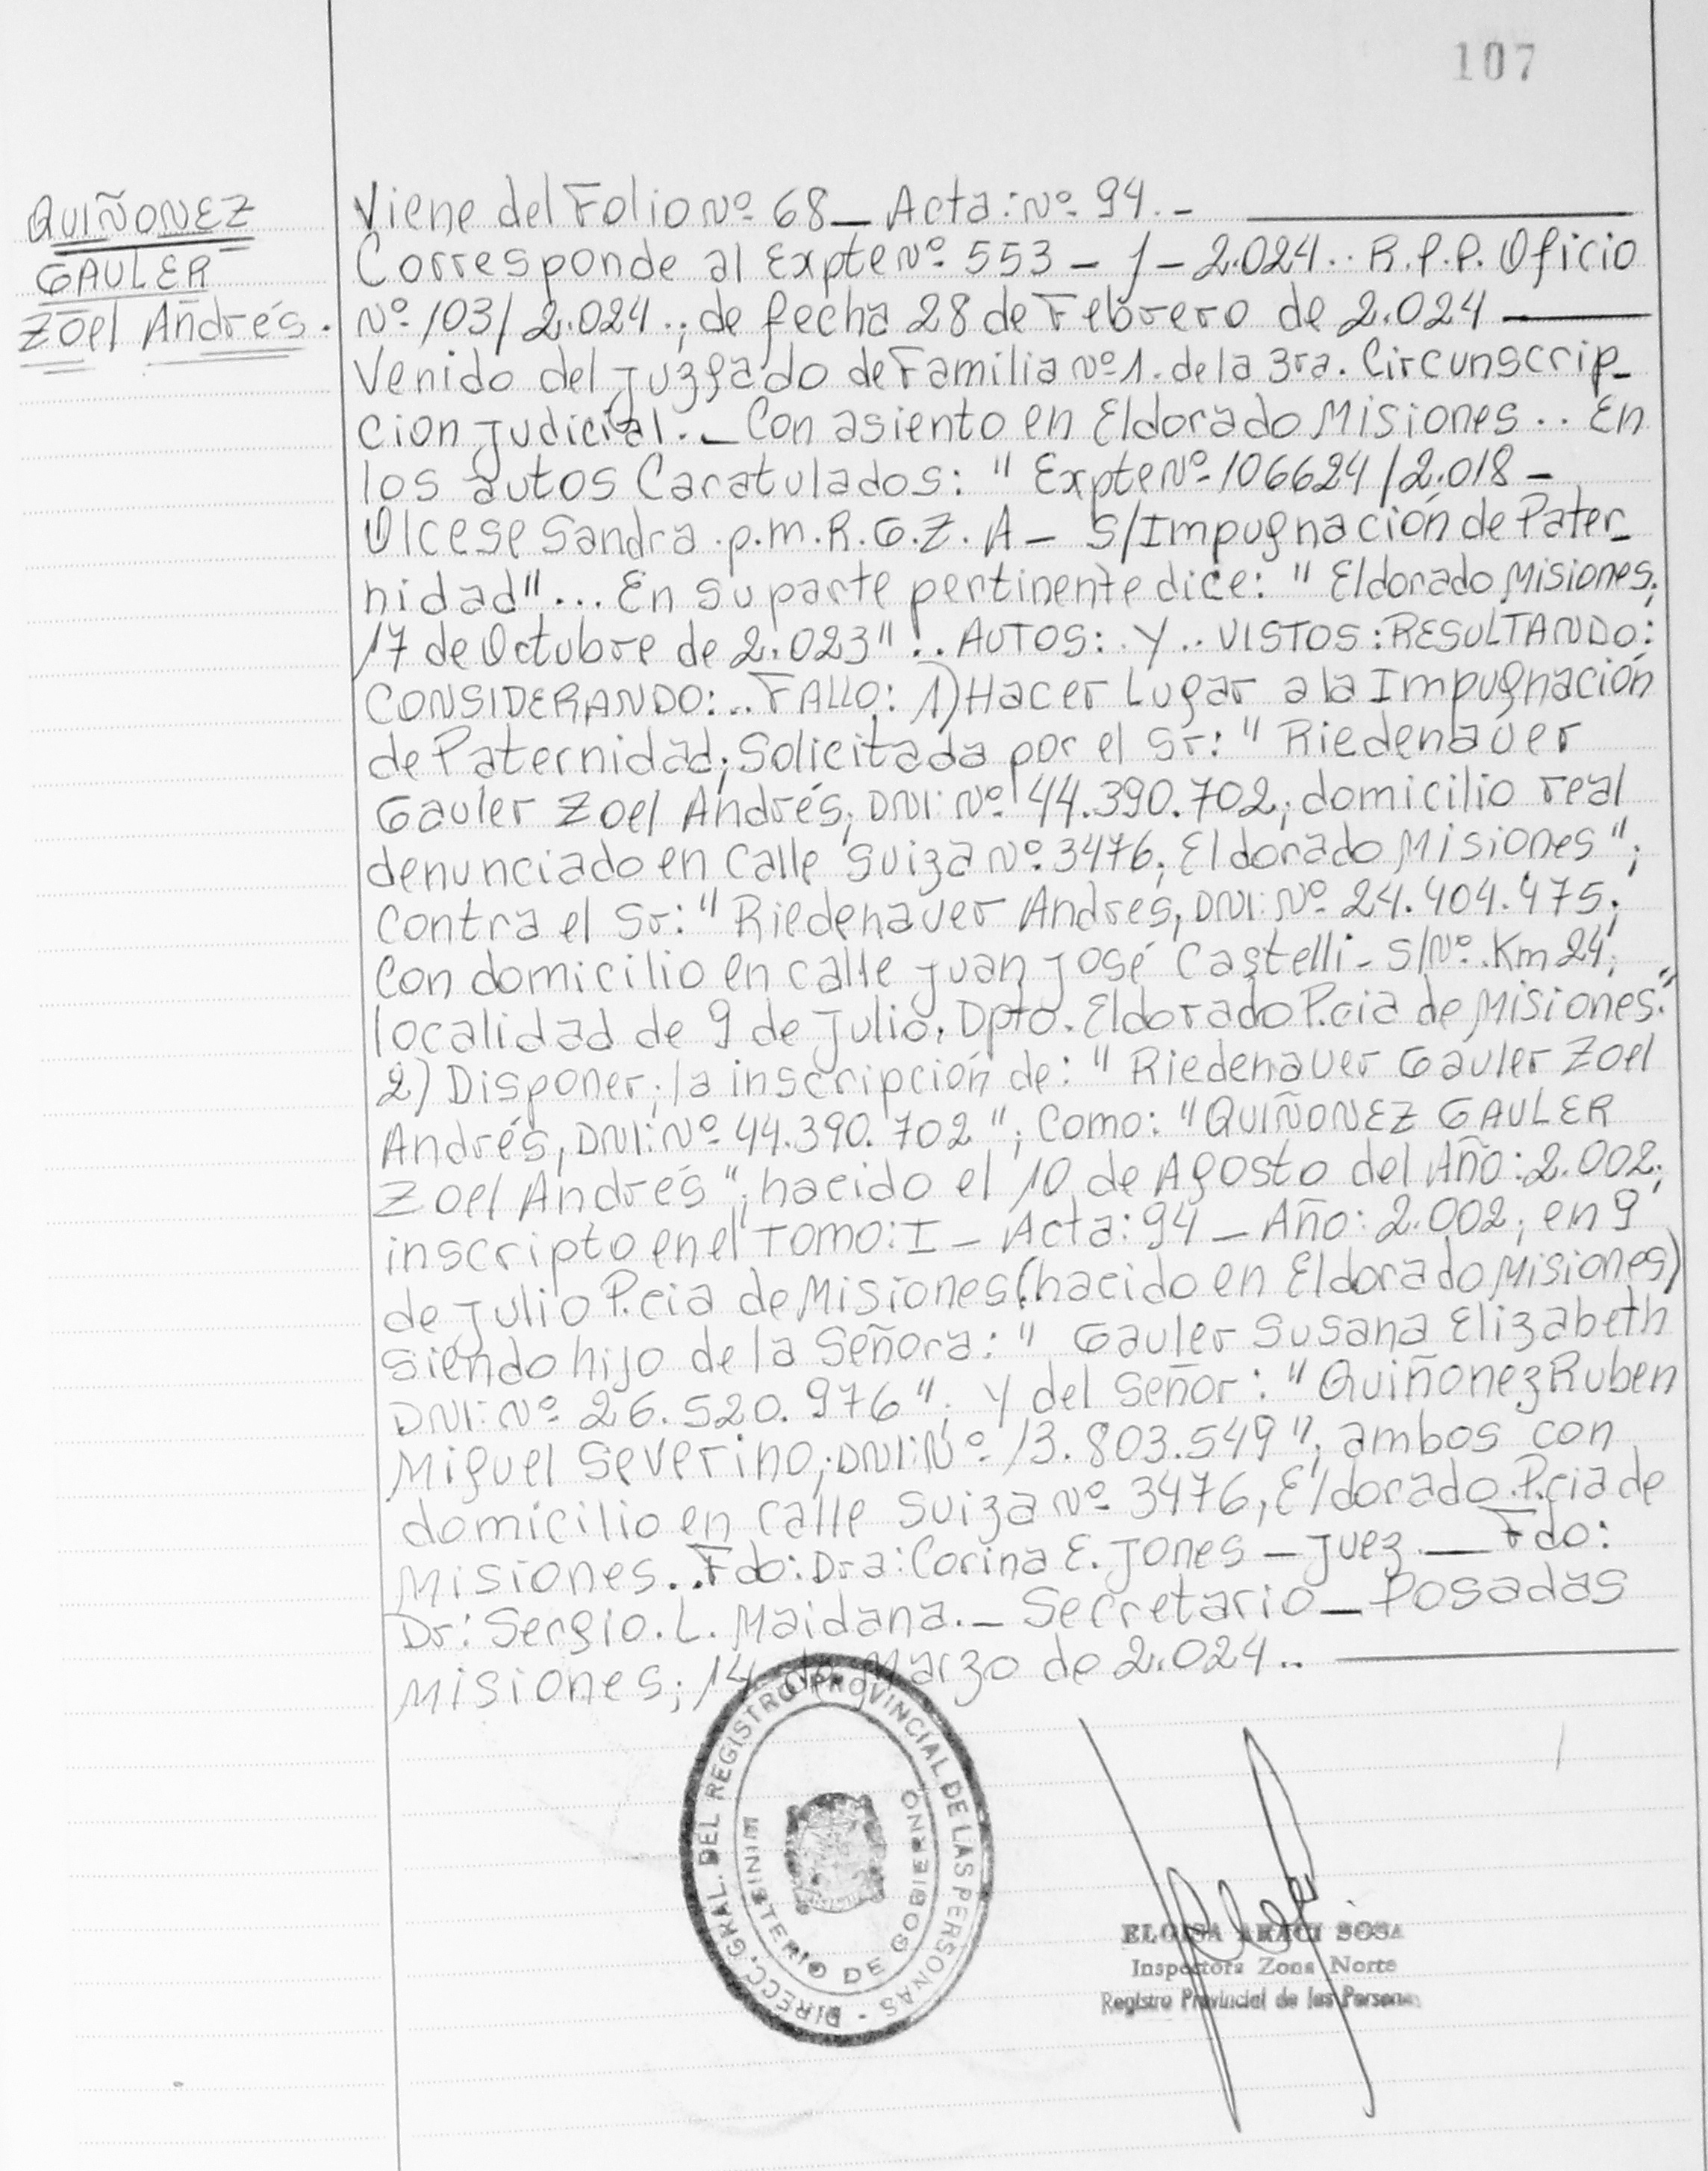 107
QUIÑONEZ
GAULER
Zoel Andrés.
Viene del Folio Nº 68 _ Acta: Nº 94. -
Corresponde al Expte Nº 553 - J - 2.024.. R.P.P. Oficio
Nº 103/2.024.; de fecha 28 de Febrero de 2.024
Venido del Juzgado de Familia Nº 1. de la 3ra. Circunscrip_
cion Judicial._ Con asiento en Eldorado Misiones.. En
los autos Caratulados: "Expte Nº 106624/2.018 -
Olcese Sandra p.m.R.G.Z.A - S/Impugnación de Pater_
nidad"... En su parte pertinente dice: "Eldorado Misiones;
17 de Octubre de 2.023".. AUTOS: Y.. VISTOS: RESULTANDO:
CONSIDERANDO:.. FALLO: 1) Hacer Lugar a la Impugnación
de Paternidad; Solicitada por el Sr: "Riedenauer
Gauler Zoel Andrés; DNI: Nº 44.390.702; domicilio real
denunciado en Calle Suiza Nº 3476; Eldorado Misiones";
Contra el Sr: "Riedenauer Andres, DNI: Nº 24.404.475;
Con domicilio en calle Juan José Castelli - S/Nº. Km 24;
localidad de 9 de Julio, Dpto. Eldorado P.cia de Misiones."
2) Disponer; la inscripción de: "Riedenauer Gauler Zoel
Andrés, DNI: Nº 44.390.702"; Como: "QUIÑONEZ GAULER
Zoel Andrés"; nacido el 10 de Agosto del Año: 2.002;
inscripto en el Tomo: I - Acta: 94 - Año: 2.002; en 9
de Julio P.cia de Misiones (nacido en Eldorado Misiones)
Siendo hijo de la Señora: " Gauler Susana Elizabeth
DNI: Nº 26.520.976"; y del Señor: "Quiñonez Ruben
Miguel Severino; DNI: Nº 13.803.549"; ambos con
domicilio en Calle Suiza Nº 3476, Eldorado P.cia de
Misiones.. Fdo: Dra: Corina E. Jones - Juez.__ Fdo:
Dr: Sergio. L. Maidana._ Secretario _ Posadas
Misiones; 14 de Marzo de 2.024..
DIRECC. GRAL. DEL REGISTRO PROVINCIAL DE LAS PERSONAS -
MINISTERIO DE GOBIERNO
ELOISA ARACI SOSA
Inspectora Zona Norte
Registro Provincial de las Personas